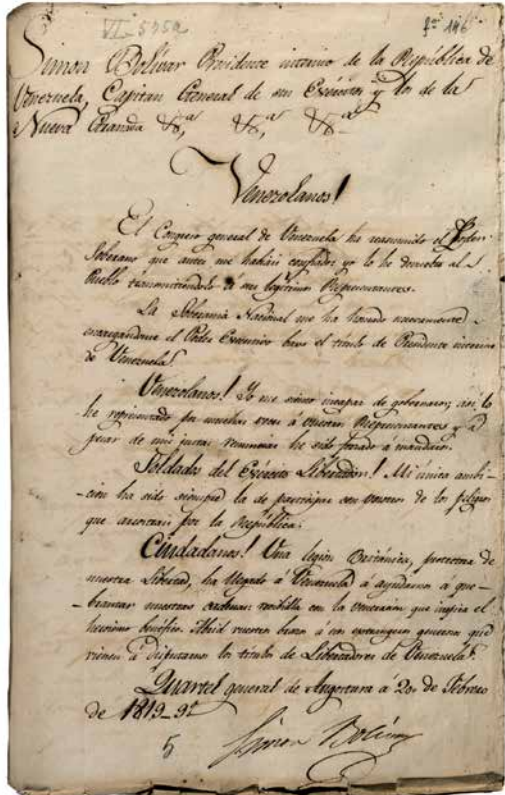 VI-535a
fº 196
Simon Bolívar Presidente interino de la República de
Venezuela, Capitan General de sus Exércitos y los de la
Nueva Granada &ª, &ª, &ª
Venezolanos!
El Congreso general de Venezuela ha reasumido el Poder
Soberano que antes me habíais confiado: yo lo he devuelto al
Pueblo transmitiendolo á sus legítimos Representantes.
La Soberanía Nacional me ha honrado nuevamente
encargandome el Poder Executivo baxo el título de Presidente interino
de Venezuela.
Venezolanos! Yo me siento incapaz de gobernaros; así lo
he representado por muchas veces á vuestros Representantes y á
pesar de mis justas renuncias he sido forzado á mandaros.
Soldados del Exército Libertador! Mi única ambi-
-cion ha sido siempre la de participar con vosotros de los peligros
que arrostrais por la República.
Ciudadanos! Una legion Británica, protectora de
nuestra Libertad, ha llegado á Venezuela á ayudarnos á que-
-brantar nuestras cadenas: con la veneracion que inspira el
heroismo benéfico. Abrid vuestros brazos á esos extrangeros generosos que
vienen á disputarnos los títulos de Libertadores de Venezuela.
Quartel general de Angostura á 20 de Febrero
de 1819-9º
Simon Bolívar
5